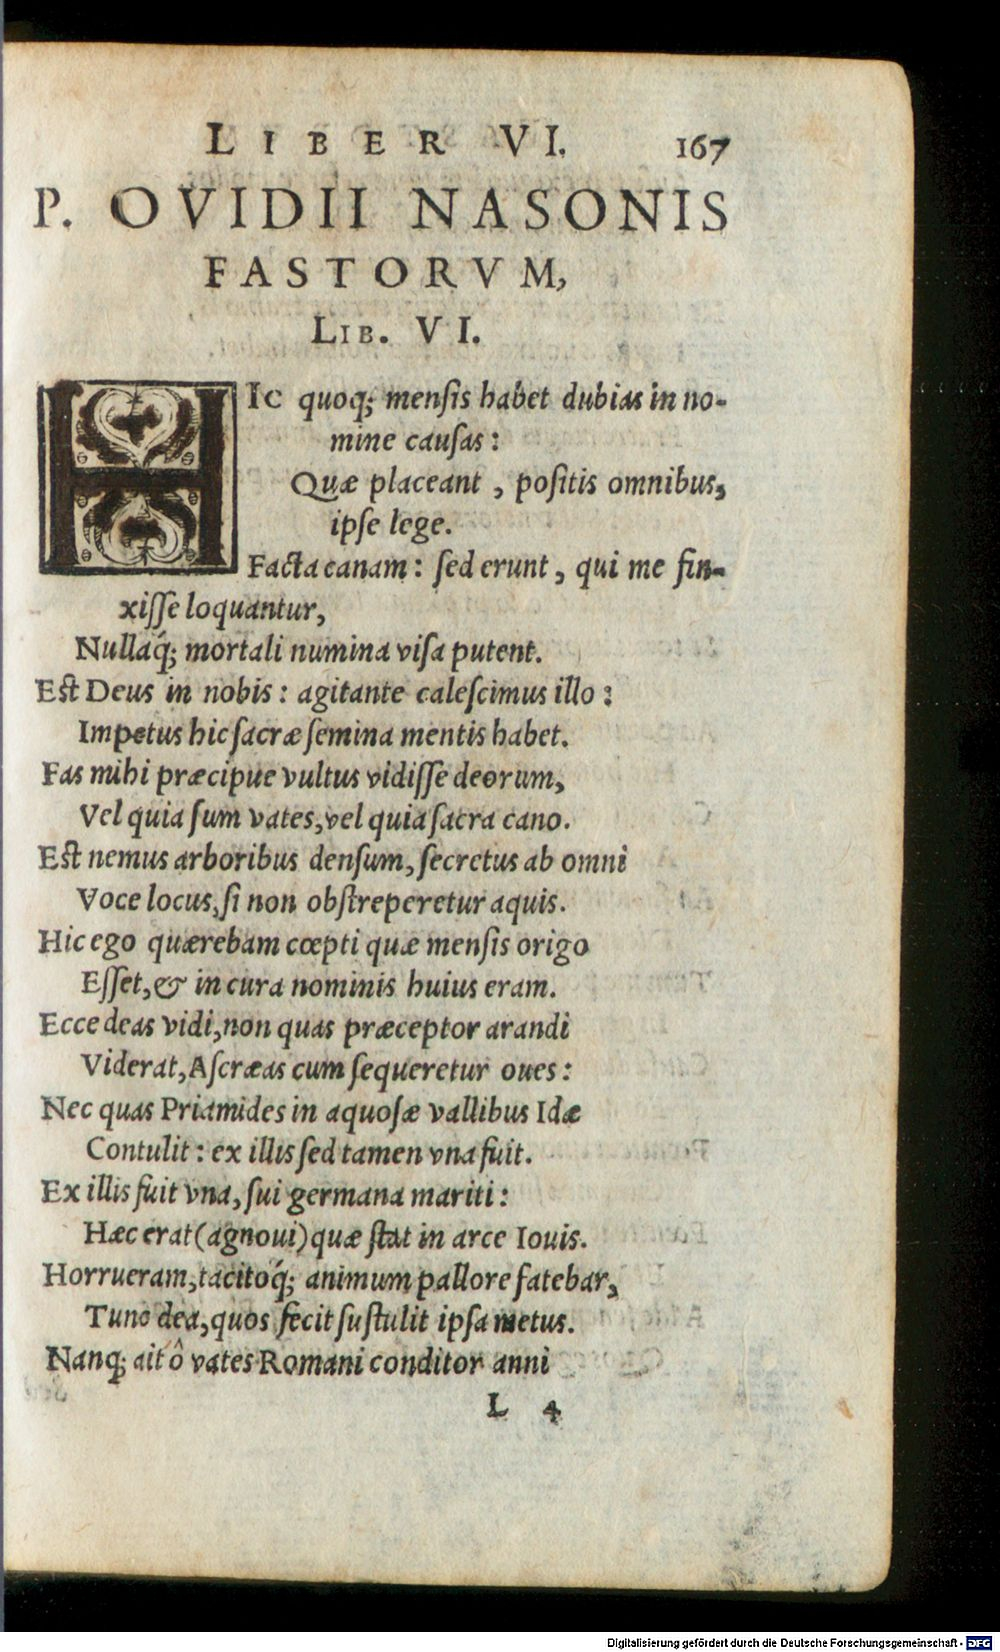 LIBER VI. 167
P. OVIDII NASONIS
FASTORVM,
LIB. VI.
HIC quoq; menſis habet dubias in no-
mine cauſas:
Quæ placeant, poſitis omnibus,
ipſe lege.
Facta canam: ſed erunt, qui me fin-
xiſſe loquantur,
Nullaq́; mortali numina viſa putent.
Est Deus in nobis: agitante caleſcimus illo:
Impetus hic ſacræ ſemina mentis habet.
Fas mihi præcipue vultus vidiſſe deorum,
Vel quia ſum vates, vel quia ſacra cano.
Est nemus arboribus denſum, ſecretus ab omni
Voce locus, ſi non obſtreperetur aquis.
Hic ego quærebam cœpti quæ menſis origo
Eſſet, & in cura nominis huius eram.
Ecce deas vidi, non quas præceptor arandi
Viderat, Aſcræas cum ſequeretur oues:
Nec quas Priamides in aquoſæ vallibus Idæ
Contulit: ex illis ſed tamen vna fuit.
Ex illis fuit vna, ſui germana mariti:
Hæc erat (agnoui) quæ ſtat in arce Iouis.
Horrueram, tacitoq́; animum pallore fatebar,
Tunc dea, quos fecit ſuſtulit ipſa metus.
Nanq; ait ô vates Romani conditor anni
L 4
Digitalisierung gefördert durch die Deutsche Forschungsgemeinschaft - DFG